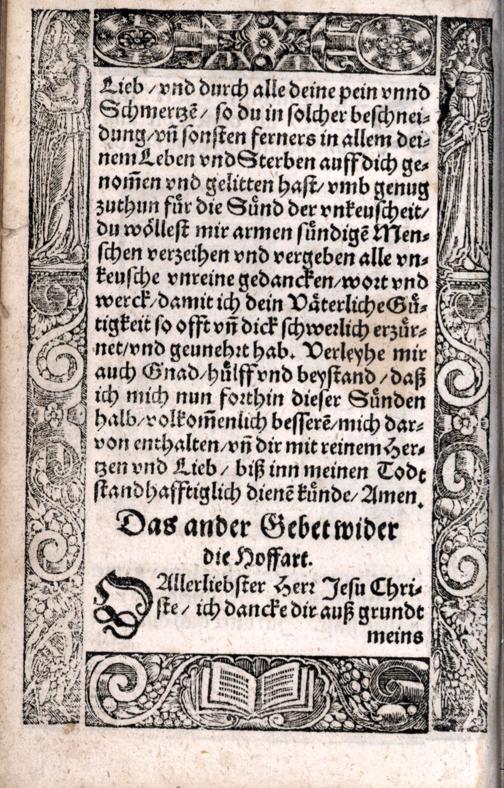 Lieb / vnd durch alle deine pein vnnd
Schmertzē / so du in solcher beschnei⸗
dung / vn̄ sonsten ferners in allem dei⸗
nem Leben vnd Sterben auff dich ge⸗
nom̄en vnd gelitten hast / vmb genug
zuthun für die Sünd der vnkeuscheit /
du wöllest mir armen sündigē Men⸗
schen verzeihen vnd vergeben alle vn⸗
keusche vnreine gedancken / wort vnd
werck / damit ich dein Väterliche Gü⸗
tigkeit so offt vn̄ dick schwerlich erzür⸗
net / vnd geunehrt hab. Verleyhe mir
auch Gnad / hülff vnd beystand / daß
ich mich nun forthin dieser Sünden
halb / volkom̄enlich besserē / mich dar⸗
von enthalten / vn̄ dir mit reinem Her⸗
tzen vnd Lieb / biß inn meinen Todt
standhafftiglich dienē künde / Amen.
Das ander Gebet wider
die Hoffart.
O Allerliebster Herr Jesu Chri⸗
ste / ich dancke dir auß grundt
meins